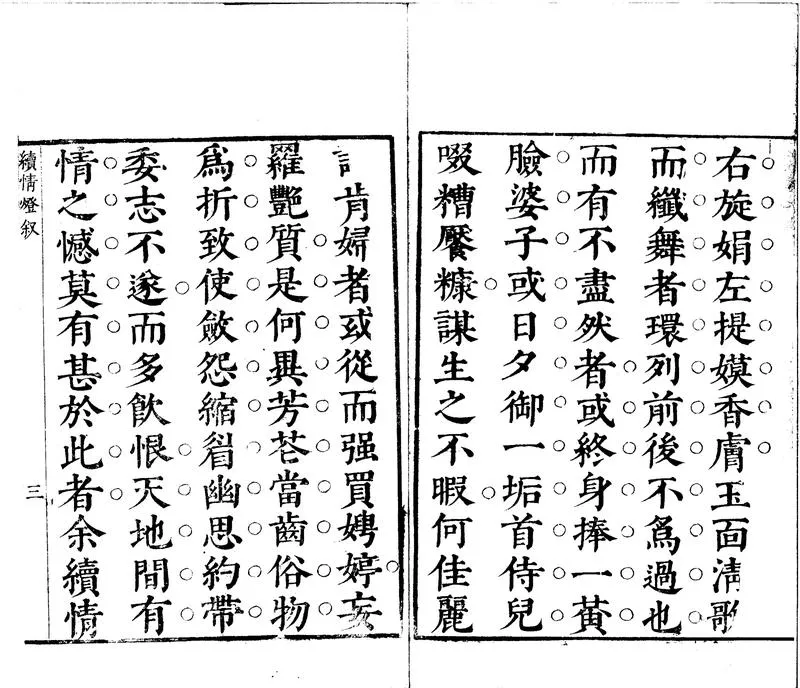 右旋娟左提嫫香膚玉面清歌
而纖舞者環列前後不爲過也
而有不盡然者或終身捧一黃
臉婆子或日夕御一垢首侍兒
啜糟饜糠謀生之不暇何佳麗
肯婦者或從而强買娉婷妄
羅艷質是何異芳當齒俗物
爲折致使斂怨縮眉幽思約帶
委志不遂而多飲恨天地間有
情之憾莫有甚於此者余續情
續情燈叙
三